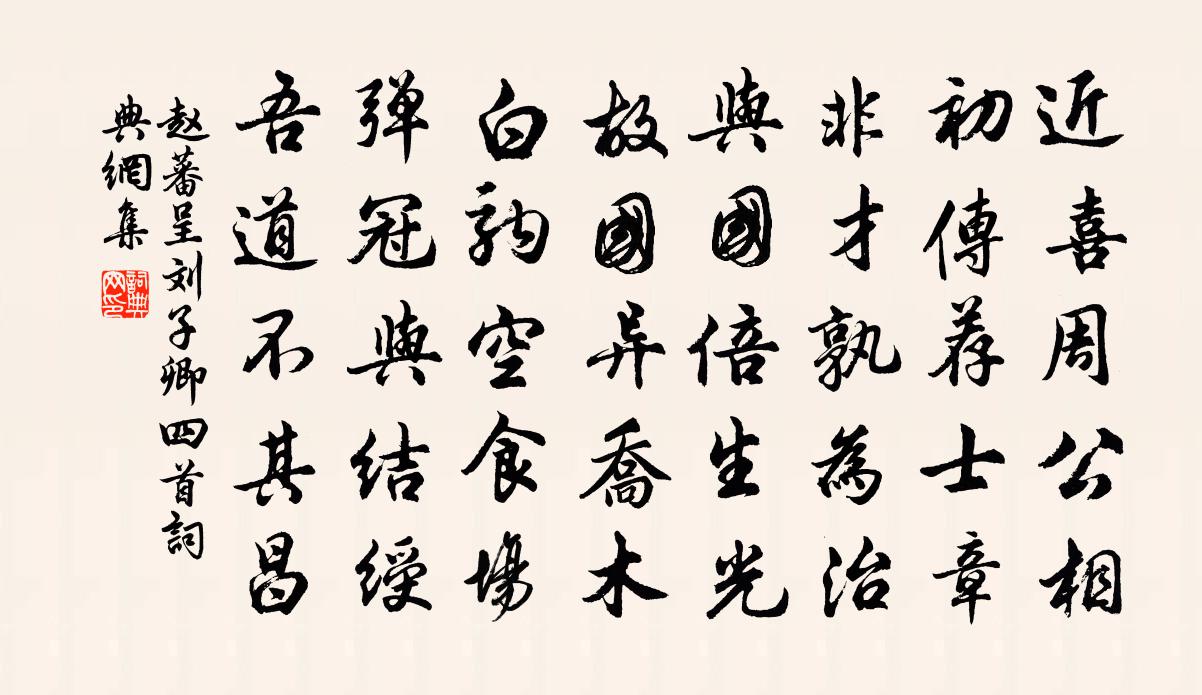 近喜周公相
初傳荐士章
非才孰為治
與國倍生光
故國异喬木
白駒空食場
弹冠與结綬
吾道不其昌
赵蕃呈刘子卿四首詞
典網集
詞典网印